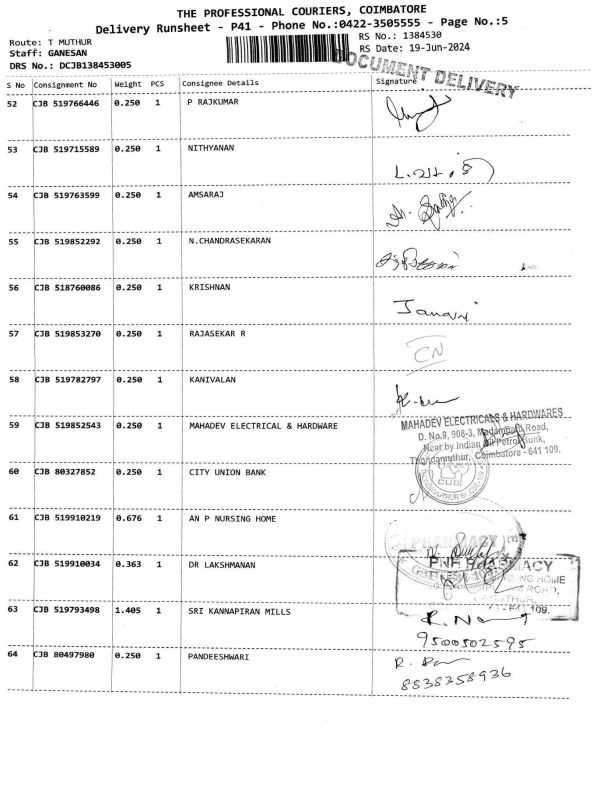 THE PROFESSIONAL COURIERS, COIMBATORE
Delivery Runsheet - P41 - Phone No.:0422-3505555 - Page No.:5
Route: T MUTHUR
RS No.: 1384530
Staff: GANESAN
RS Date: 19-Jun-2024
DRS No.: DCJB138453005
DOCUMENT DELIVERY
S No Consignment No Weight PCS Consignee Details Signature
52 CJB 519766446 0.250 1 P RAJKUMAR
53 CJB 519715589 0.250 1 NITHYANAN
54 CJB 519763599 0.250 1 AMSARAJ
55 CJB 519852292 0.250 1 N.CHANDRASEKARAN
56 CJB 518760086 0.250 1 KRISHNAN
57 CJB 519853270 0.250 1 RAJASEKAR R CN
58 CJB 519782797 0.250 1 KANIVALAN
59 CJB 519852543 0.250 1 MAHADEV ELECTRICAL & HARDWARE
MAHADEV ELECTRICALS & HARDWARES
D. No.9, 908-3, Madampatti Road,
Near by Indian Oil Petrol Bunk,
Thondamuthur, Coimbatore - 641 109.
60 CJB 80327852 0.250 1 CITY UNION BANK
CUB
61 CJB 519910219 0.676 1 AN P NURSING HOME
PHARMACY
62 CJB 519910034 0.363 1 DR LAKSHMANAN
NURSING HOME
ROAD,
109.
63 CJB 519793498 1.405 1 SRI KANNAPIRAN MILLS
9500502595
64 CJB 80497980 0.250 1 PANDEESHWARI
8838358936